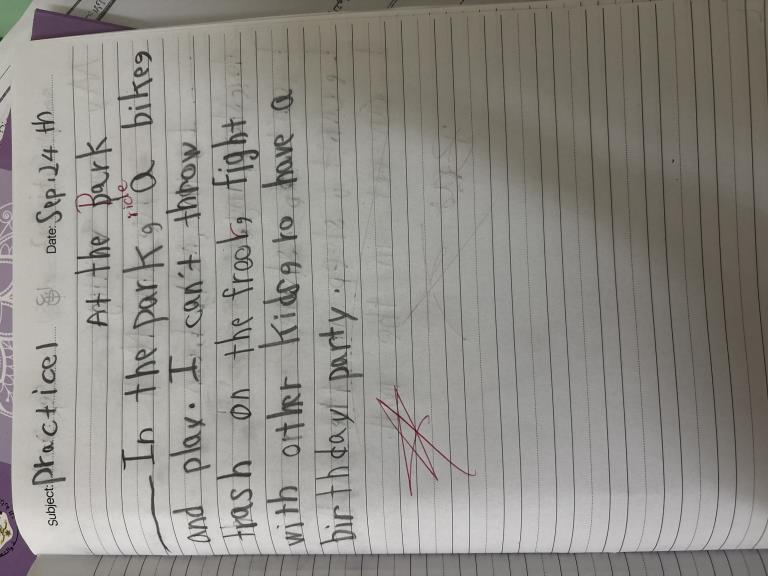 Subject: Practice1 Date: Sep.24 th
At the Park
In the park, ride a bikes
and play. I can't throw
trash on the froot, fight
with other kids, to have a
birthday party.